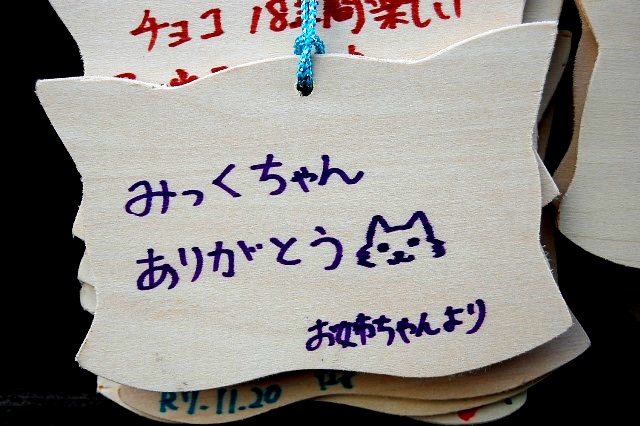 チョコ 18年間楽しい
みっくちゃん
ありがとう
お姉ちゃんより
R7.11.20